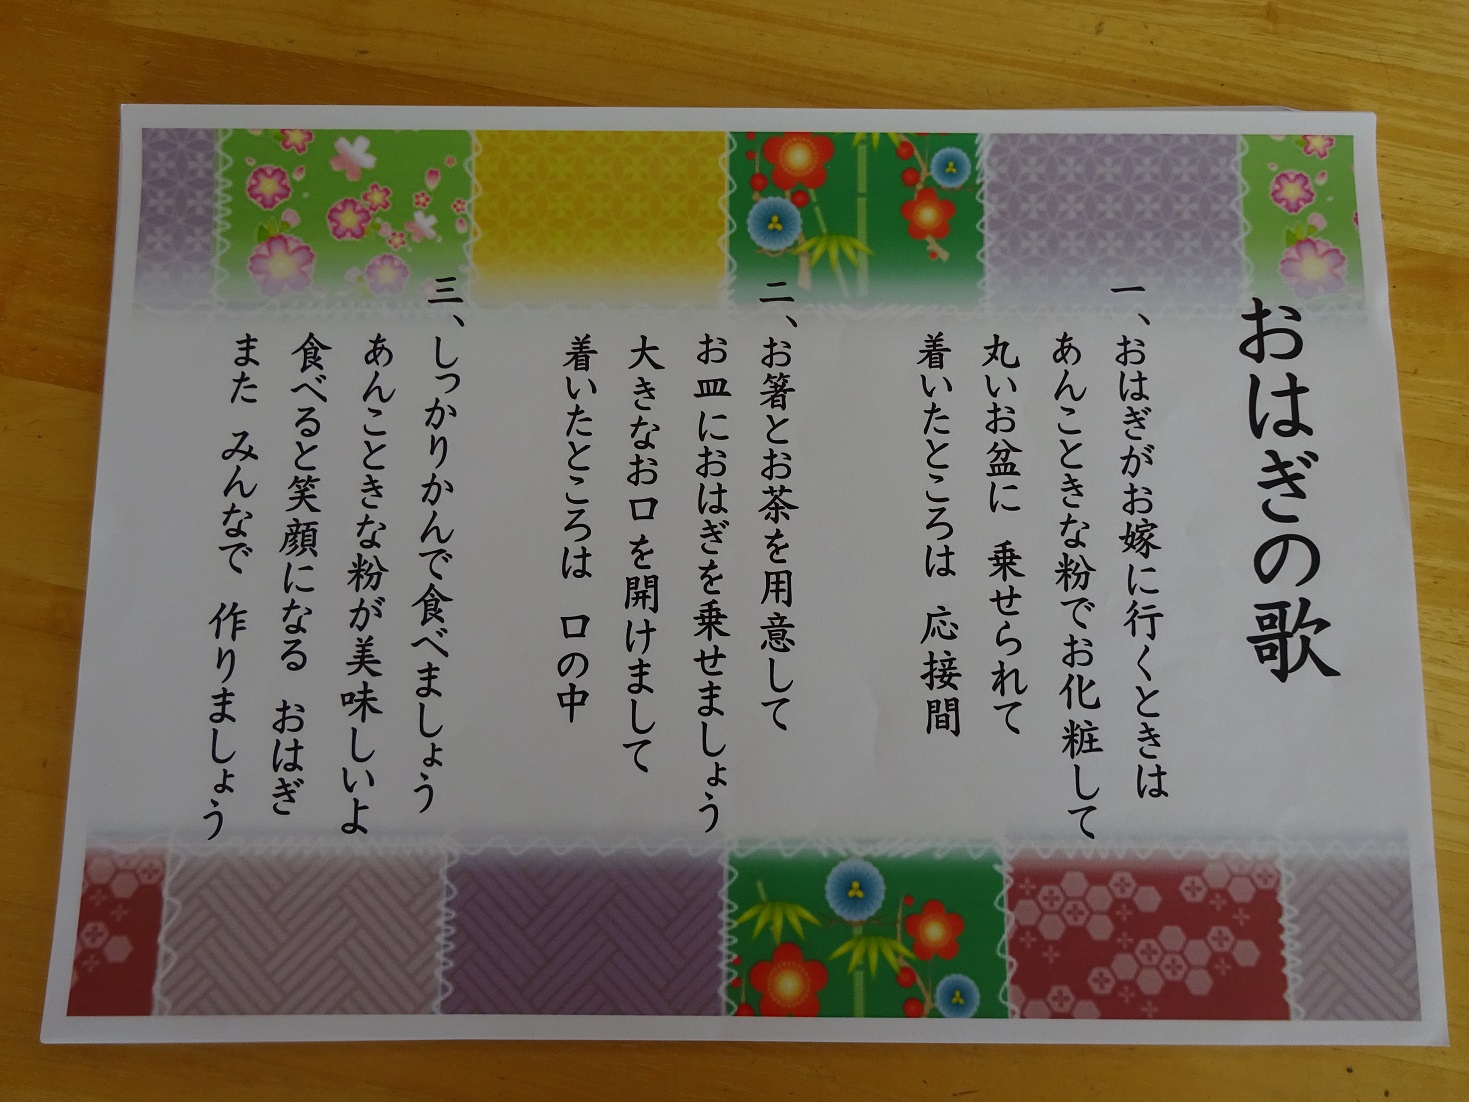 おはぎの歌
一、おはぎがお嫁に行くときは
あんこときな粉でお化粧して
丸いお盆に 乗せられて
着いたところは 応接間
二、お箸とお茶を用意して
お皿におはぎを乗せましょう
大きなお口を開けまして
着いたところは 口の中
三、しっかりかんで食べましょう
あんこときな粉が美味しいよ
食べると笑顔になる おはぎ
また みんなで 作りましょう